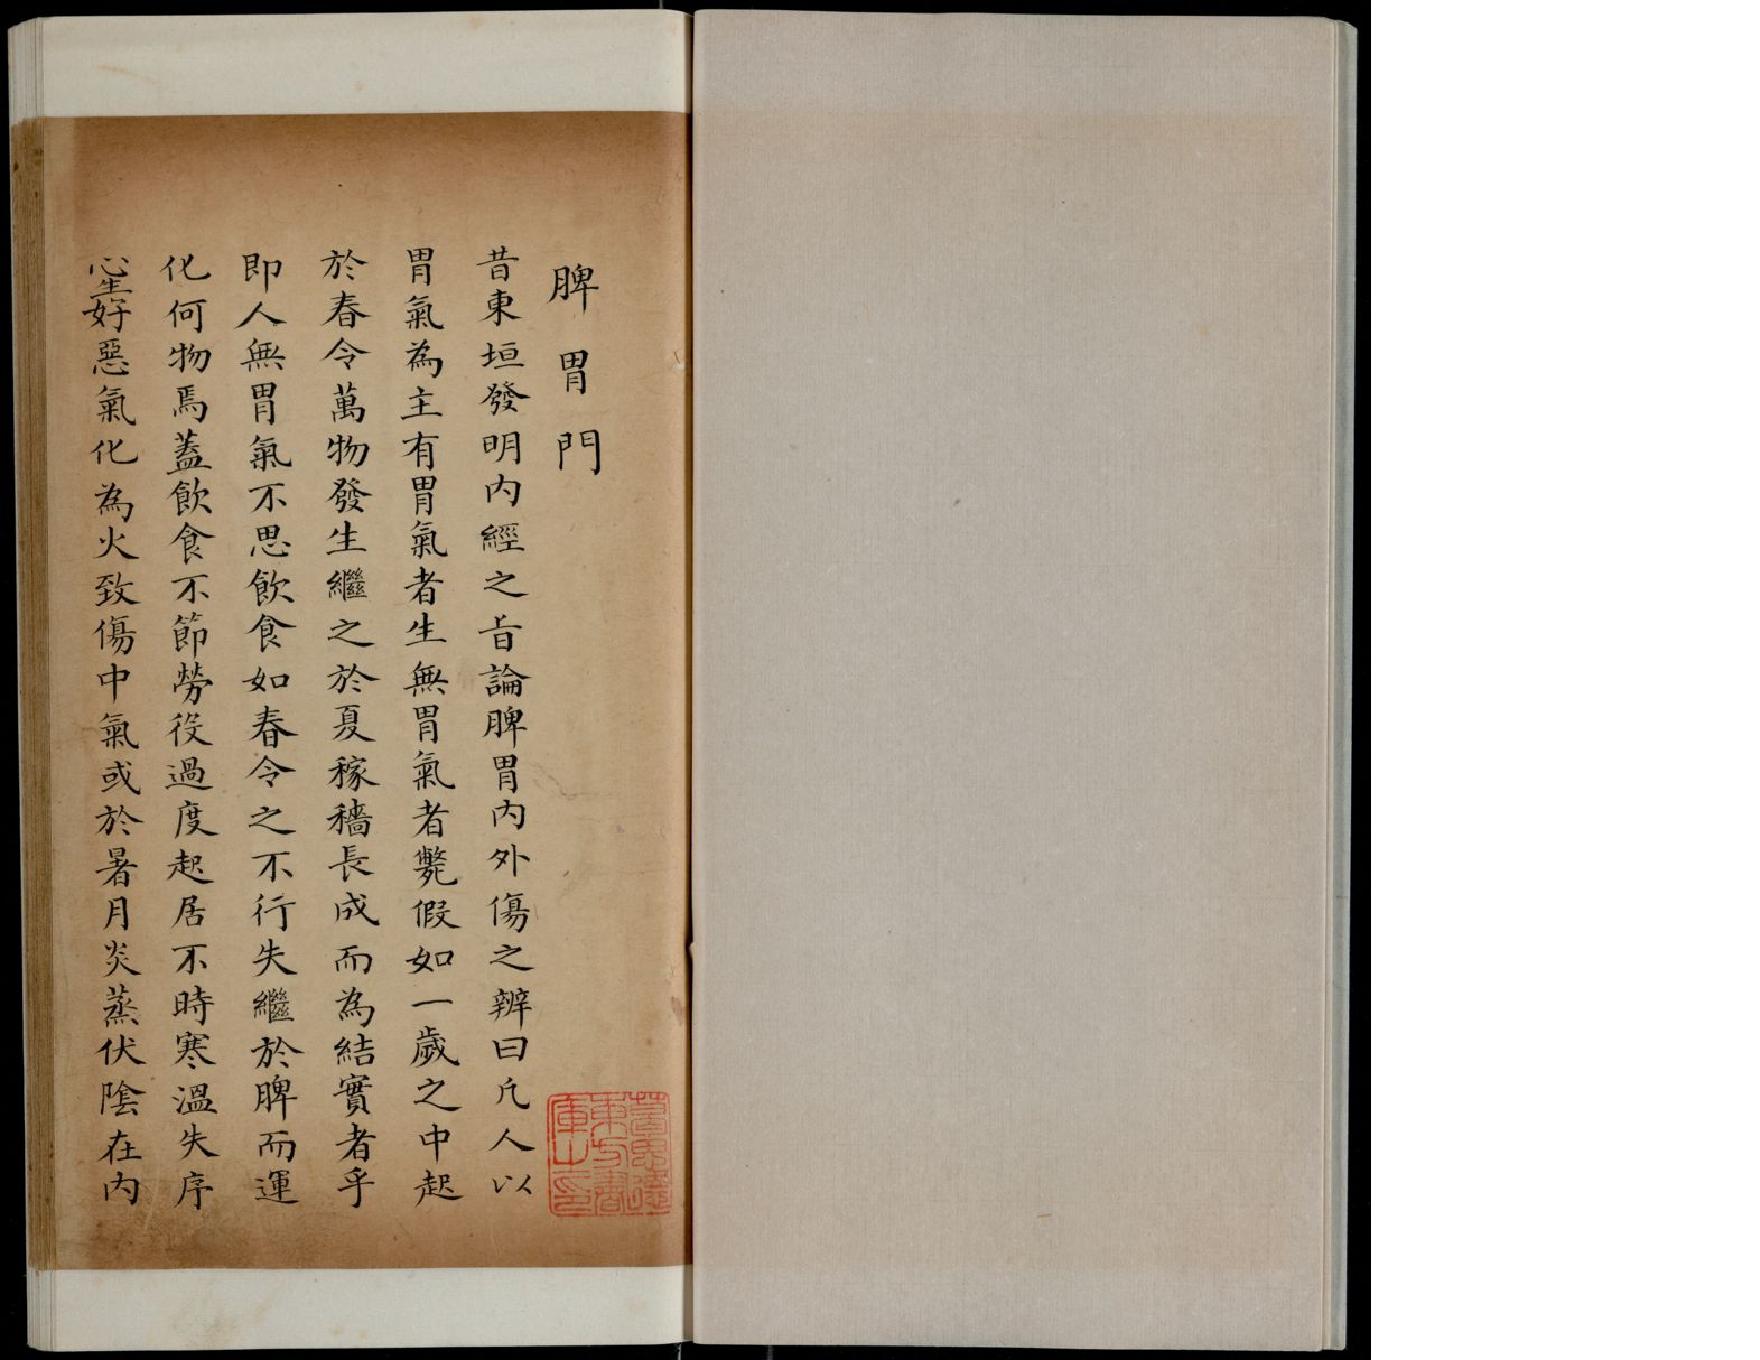 脾胃門
昔東垣發明内經之旨論脾胃内外傷之辨曰凡人以
胃氣為主有胃氣者生無胃氣者斃假如一歲之中起
於春令萬物發生繼之於夏稼穡長成而為結實者乎
即人無胃氣不思飲食如春令之不行失繼於脾而運
化何物焉蓋飲食不節勞役過度起居不時寒溫失序
心生好惡氣化為火致傷中氣或於暑月炎蒸伏陰在内